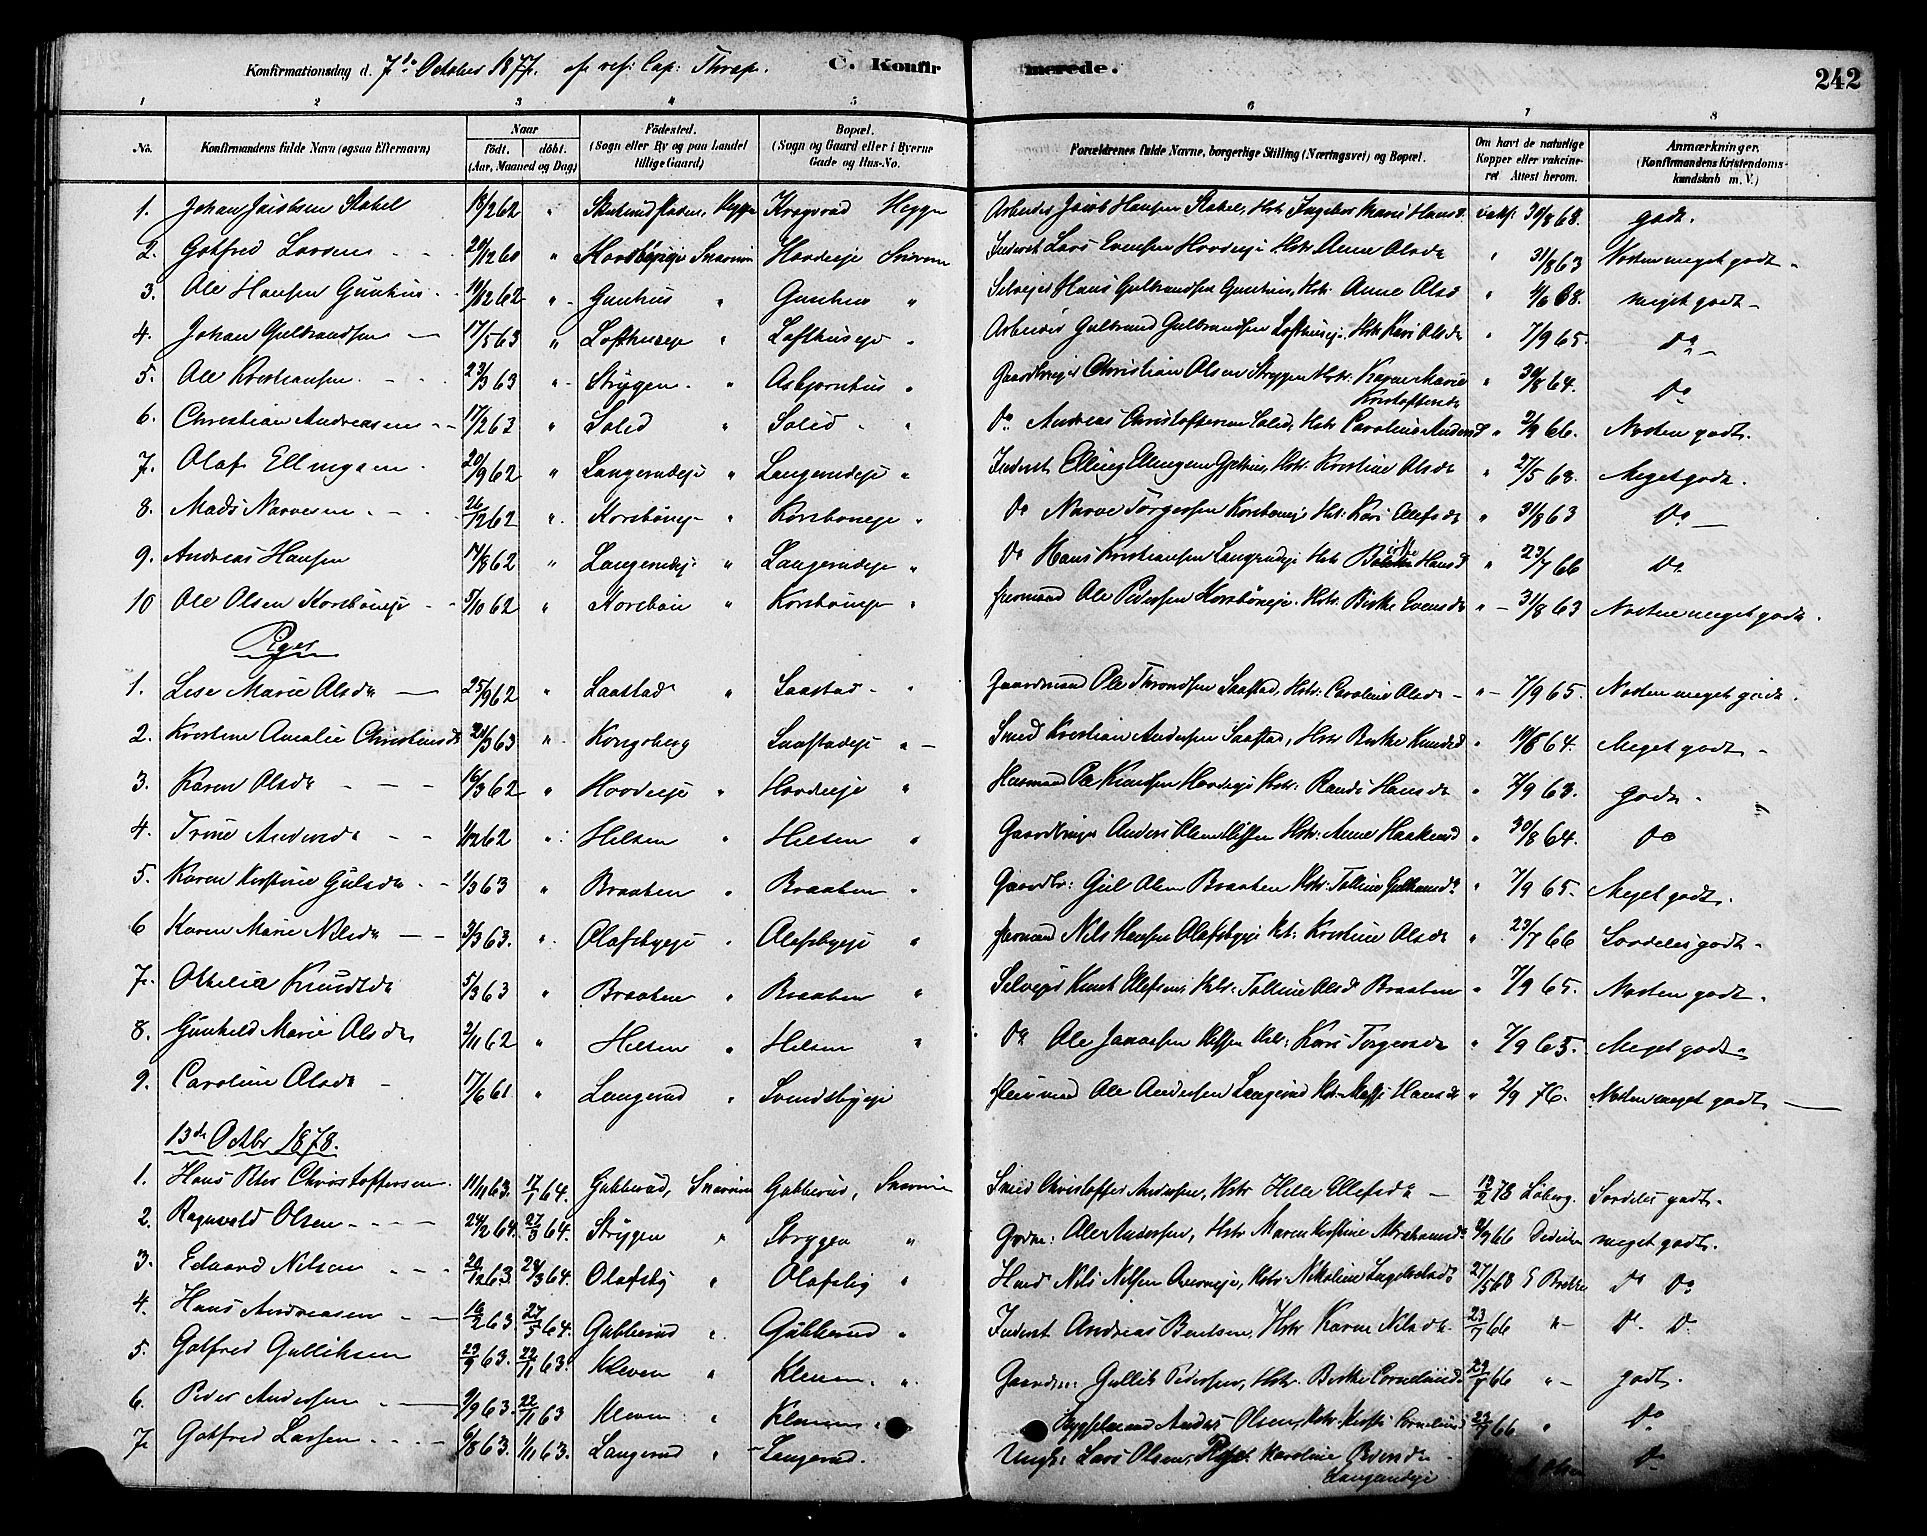 Konfirmationsdag d. 7de October 1877. af res: Cap: Thrap. C. Konfirmerede. 242
1 2 3 4 5 6 7 8
No. Konfirmandens fulde Navn (ogsaa Efternavn) Naar födt. döbt. (Aar, Maaned og Dag) Födested. (Sogn eller By og paa Landet tillige Gaard) Bopæl. (Sogn og Gaard eller i Byerne Gade og Hus-No. Forældrenes fulde Navne, borgerlige Stilling (Næringsvei) og Bopæl. Om havt de naturlige Kopper eller vakcineret Attest herom. Anmærkninger. (Konfirmandens Kristendomskundskab m. V.)
1. Johan Jacobsen Stabel 13/2 62 " Hegge Kragsrud Hegge Arbeider Jacob Hansen Stabel, Hstr Ingebor Marie Hansd. vakc. 30/8 68. godt.
2. Gotfred Larsen 20/12 60 " Snarum Hovdeeje Snarum Inderst Lars Evensen Hovdeeje Hstr. Anne Olsdr " 31/8 63 Næsten meget godt
3. Ole Hansen Gunhus 12 62 " Gunhus " Gunhus " Selvejer Hans Gulbrandsen Gunhus, Hstr. Anne Olsd " 4/6 68. meget godt
4. Johan Gulbrandsen 17/5 63 " Lofthuseje " Lofthuseje " Arbeider Gulbrand Gulbrandsen Lofthuseje. Hstr Kari Olsdr " 7/9 65. Do
5. Ole Kristiansen 23/3 63 " Strygen " Asbjornhus " Gaardbruger Christian Olsen Strygen Hstr. Karen Marie Kristoffersdr " 30/8 64. Do
6. Christian Andreasen 17/2 63 " Solid " Solid " Do Andreas Christoffersen Solid, Hstr Caroline Andersd " 2/9 66. Næsten godt.
7. Olaf Ellingsen 20/9 62 " Langerudeje " Langerudeje " Inderst Elling Ellingsen Hstr. Kristine Olsdr " 27/5 68. Meget godt.
8. Mads Narvesen 26/12 62 " Korsböneje " Korsboneje " Do Narve Torgersen Korsboneje Hstr. Kari Olsdr " 31/8 63 Do
9. Andreas Hansen 17/8 62 " Langerudeje " Langerudeje " Do Hans Kristiansen Langerudeje Hstr. Hansd " 23/7 66 Do
10 Ole Olsen Korsböneje 5/10 62 " Korsbön " Korsböneje " Ole Pedersen Korsböneje. Hstr. Birthe Evensdr " 31/8 63 Næsten meget godt.
Piger
1. Lise Marie Olsdr 25/9 62 " Saastad " Saastad " Gaardmand Ole Throndsen Saastad, Hstr. Caroline Olsdr " 7/9 65. Næsten meget godt.
2. Kristine Amalie Christiansdr 21/3 63 " Kongsberg Saastadeje " Smed Kristian Andersen Saastad, Hstr Birthe Knudsd " 19/8 64. Meget godt
3. Karen Olsdr 16/3 62 " Hovdeeje " Hovdeeje " Husmand Ole Knudsen Hovdeeje Hstr. Randi Hansdr " 7/9 63. godt.
4. Trine Andersdr 1/12 62 " Helsen " Helsen " Gaardbruger Anders Olsen Hstr. Anne Haakensd " 30/8 64. Do
5. Karen Kirstine Gulsdr 1/3 63 " Braaten " Braaten " Gaardbr: Gul Olsen Braaten Hstr. Tolline " 7/9 65. Meget godt.
6 Karen Marie Nilsdr 3/3 63. " Olafsbyeje " Olafsbyeje " Nils Hansen Olafsbyeje Hstr. Kristine Olsdr " 23/7 66 Særdeles godt
7. Othelia Knudtsdr 5/3 63 " Braaten " Braaten " Selvejer Knut Olsen, Hstr. Tolline Olsd Braaten " 7/9 65. Næsten godt.
8. Gunhild Marie Olsdr 2/11 62 " Helsen " Helsen " Do Ole Hstr. Kari Torgersdr " 7/9 65. Meget godt.
9. Caroline Olsdr 17/6 61 " Langerud " Svendsbyeje Ole Andersen Langerud Hstr. Hansdr " 2/9 76. Næsten meget godt
13de Octbr 1878.
1. Hans Peter Christoffersen 11/11 63. 17/1 64. Gubberud, Snarum Gubberud, Snarum Smed Christoffer Andersen, Hstr Helle Ellefsdr 19/2 78 Löberg. Særdeles godt.
2. Ragnvald Olsen 24/2 64. 27/3 64. Strygen " Strygen " Ole Andersen, Hstr Maren Kirstine Abrahamsdr 2/9 66 meget godt.
3. Edvard Nilsen 20/12 63. 28/3 64. Olafsby " Olafsby " Nils Nilsen Hstr Nikoline 27/5 68 Do Do
4. Hans Andreasen 10/2 63. 27/5 64. Gubberud " Gubberud " Inderst Andreas Berntsen, Hstr Karen Nilsdr. 23/7 66 " Do Do
5. Gotfred Gulliksen 29/9 63. 22/11 63. Kleven " Kleven " Gaardm: Gullik Pedersen, Hstr. Birthe Corneliusd. 23/7 66 " godt.
6. Peder Andersen 9/9 63. 22/11 63 Kleven " Kleven " Anders Olsen, Hstr Corneliusd 23/7 66 " Do
7. Gotfred Larsen 6/8 63. 1/11 63. Langerud " Langerud. Ungk: Lars Olsen, Pige Karoline Pedersdr Langerudeje Olsen Do